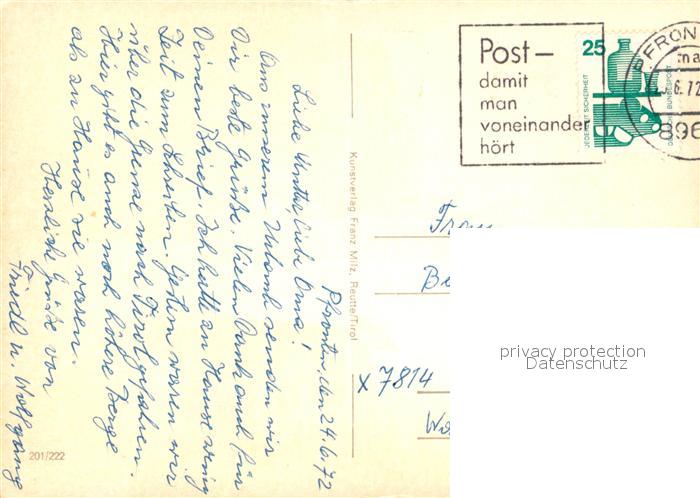 Pfronten, den 24.6.72
Liebe Mutter, liebe Oma!
Aus unserem Urlaub senden wir
Dir beste Grüße. Vielen Dank auch für
Deinen Brief. Ich hatte zu Hause wenig
Zeit zum Schreiben. Gestern waren wir
über die Grenze nach Tirol gefahren.
Hier gibt es auch noch höhere Berge
als zu Hause sie waren.
Herzliche Grüße von
Friedl u. Wolfgang
201/222
Kunstverlag Franz Milz, Reutte/Tirol
Post –
damit
man
voneinander
hört
25
JEDERZEIT SICHERHEIT
DEUTSCHE BUNDESPOST
PFRON
6.72
896
Frau
X 7814
privacy protection
Datenschutz